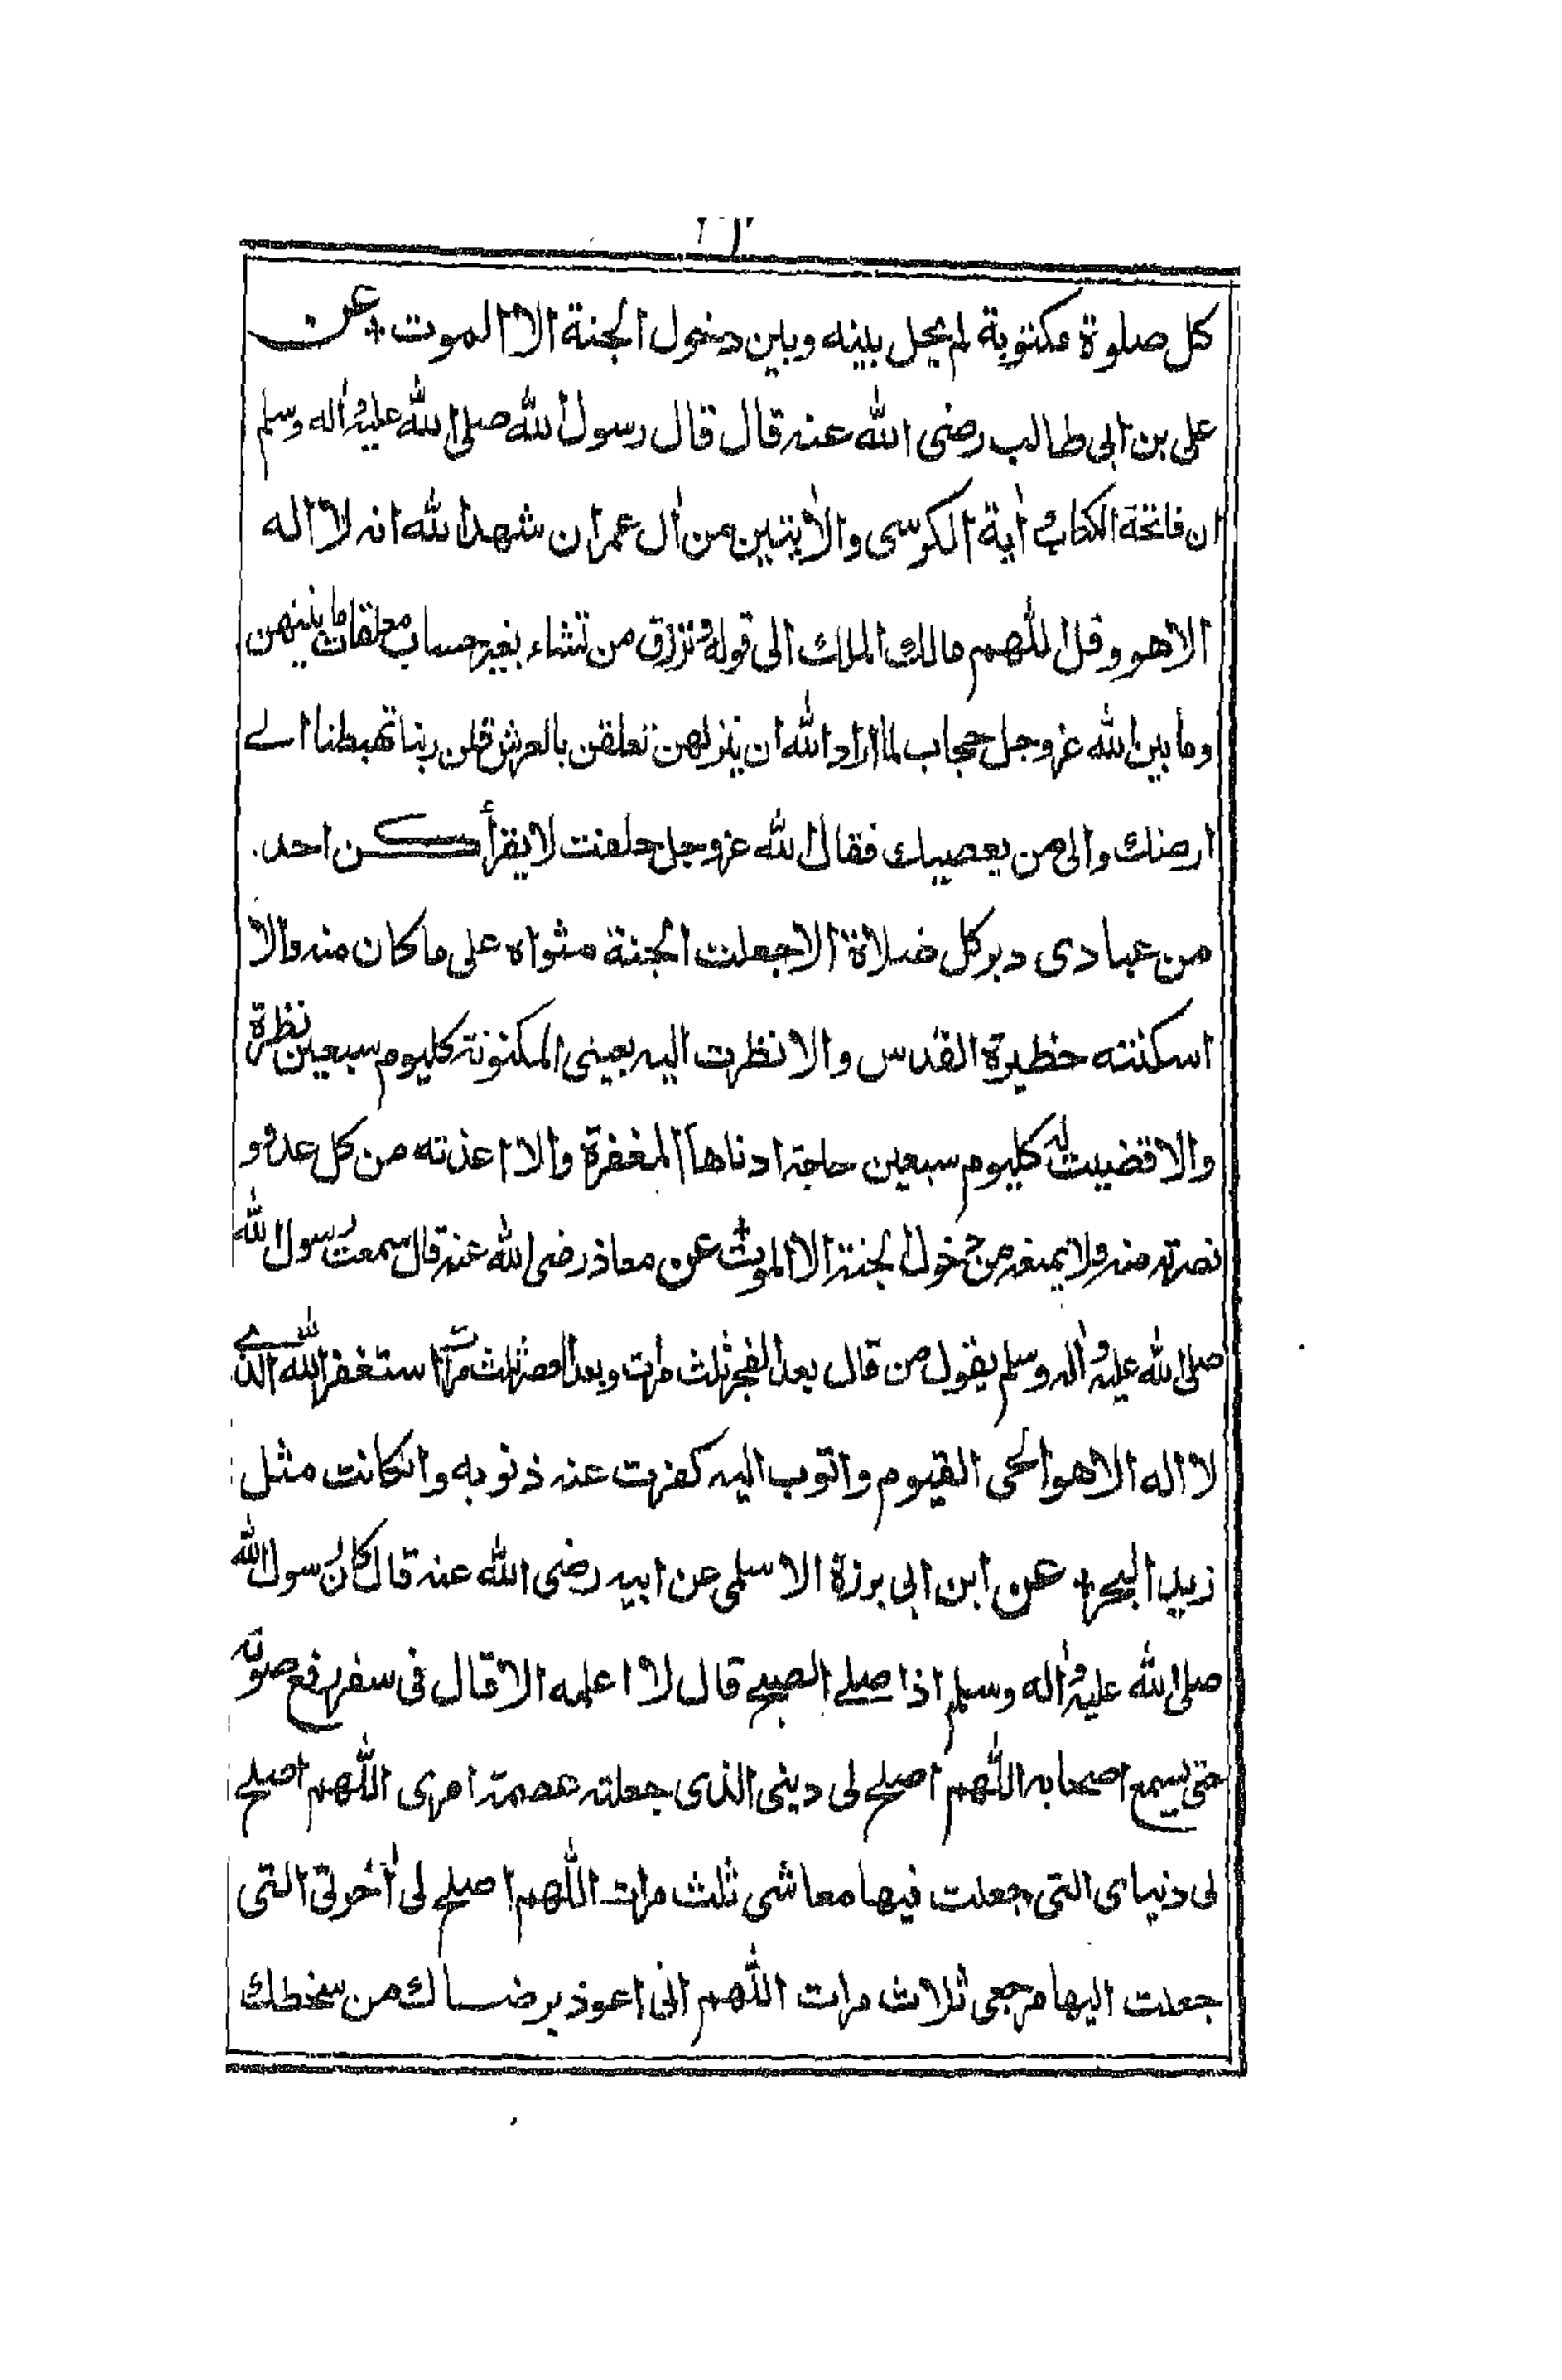 كل صلوة مكتوبة لم يحل بينه وبين دخول الجنة الا الموت + عن
على بن ابى طالب رضى الله عنه قال قال رسول الله صلى الله عليه واٰله وسلم
ان فاتحة الكتاب و اٰية الكرسى والاٰيتين من اٰل عمران شهد الله انه لا اله
الا هو و قل اللهم مالك الملك الى قوله وترزق من تشاء بغير حساب معلقات ما بينهن
وما بين الله عزوجل حجاب لما اراد الله ان ينزلهن تعلقن بالعرش قلن ربنا تهبطنا الے
ارضك والى من يعصيك فقال الله عزوجل حلفت لا يقرأكن احد
من عبادى دبر كل صلاة الا جعلت الجنة مثواه على ما كان منه والا
اسكنته حظيرة القدس والا نظرت اليه بعينى المكنونة كليوم سبعين نظرة
والا قضيت له كليوم سبعين حاجة ادناها المغفرة والا اعذته من كل عدو و
نصرته منه ولا يمنعه من دخول الجنة الا الموت + عن معاذ رضى الله عنه قال سمعت رسول الله
صلى الله عليه واٰله وسلم يقول من قال بعد الفجر ثلث مرات وبعد العصر ثلث مرات استغفر الله الذے
لا اله الا هو الحى القيوم واتوب اليه كفرت عنه ذنوبه وانكانت مثل
زبد البحر + عن ابن ابى برزة الاسلمى عن ابيه رضى الله عنه قال كان رسول الله
صلى الله عليه واٰله وسلم اذا صلے الصبح قال لا اعلمه الا قال فى سفر رفع صوته
حتى يسمع اصحابه اللهم اصلح لى دينى الذى جعلته عصمة امرى اللهم اصلح
لى دنياى التى جعلت فيها معاشى ثلث مرات اللهم اصلح لى اٰخرتى التى
جعلت اليها مرجعى ثلاث مرات اللهم انى اعوذ برضاك من سخطك